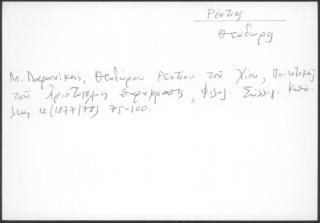 Ρέντιος
Θεόδωρος
Μ. Παρανίκας, Θεοδώρου Ρεντίου τοῦ Χίου, Ποιητικῆς
τοῦ Ἀριστοτέλους παράφρασις, Φιλολ. Σύλλογ. Κπό-
λεως 12 (1877/78) 75-100.